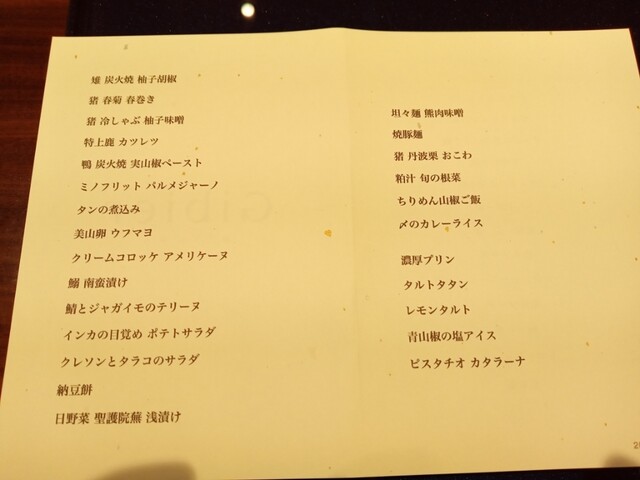 雉 炭火焼 柚子胡椒
猪 春菊 春巻き
猪 冷しゃぶ 柚子味噌
特上鹿 カツレツ
鴨 炭火焼 実山椒ペースト
ミノフリット パルメジャーノ
タンの煮込み
美山卵 ウフマヨ
クリームコロッケ アメリケーヌ
鰯 南蛮漬け
鯖とジャガイモのテリーヌ
インカの目覚め ポテトサラダ
クレソンとタラコのサラダ
納豆餅
日野菜 聖護院蕪 浅漬け
坦々麺 熊肉味噌
焼豚麺
猪 丹波栗 おこわ
粕汁 旬の根菜
ちりめん山椒ご飯
〆のカレーライス
濃厚プリン
タルトタタン
レモンタルト
青山椒の塩アイス
ピスタチオ カタラーナ